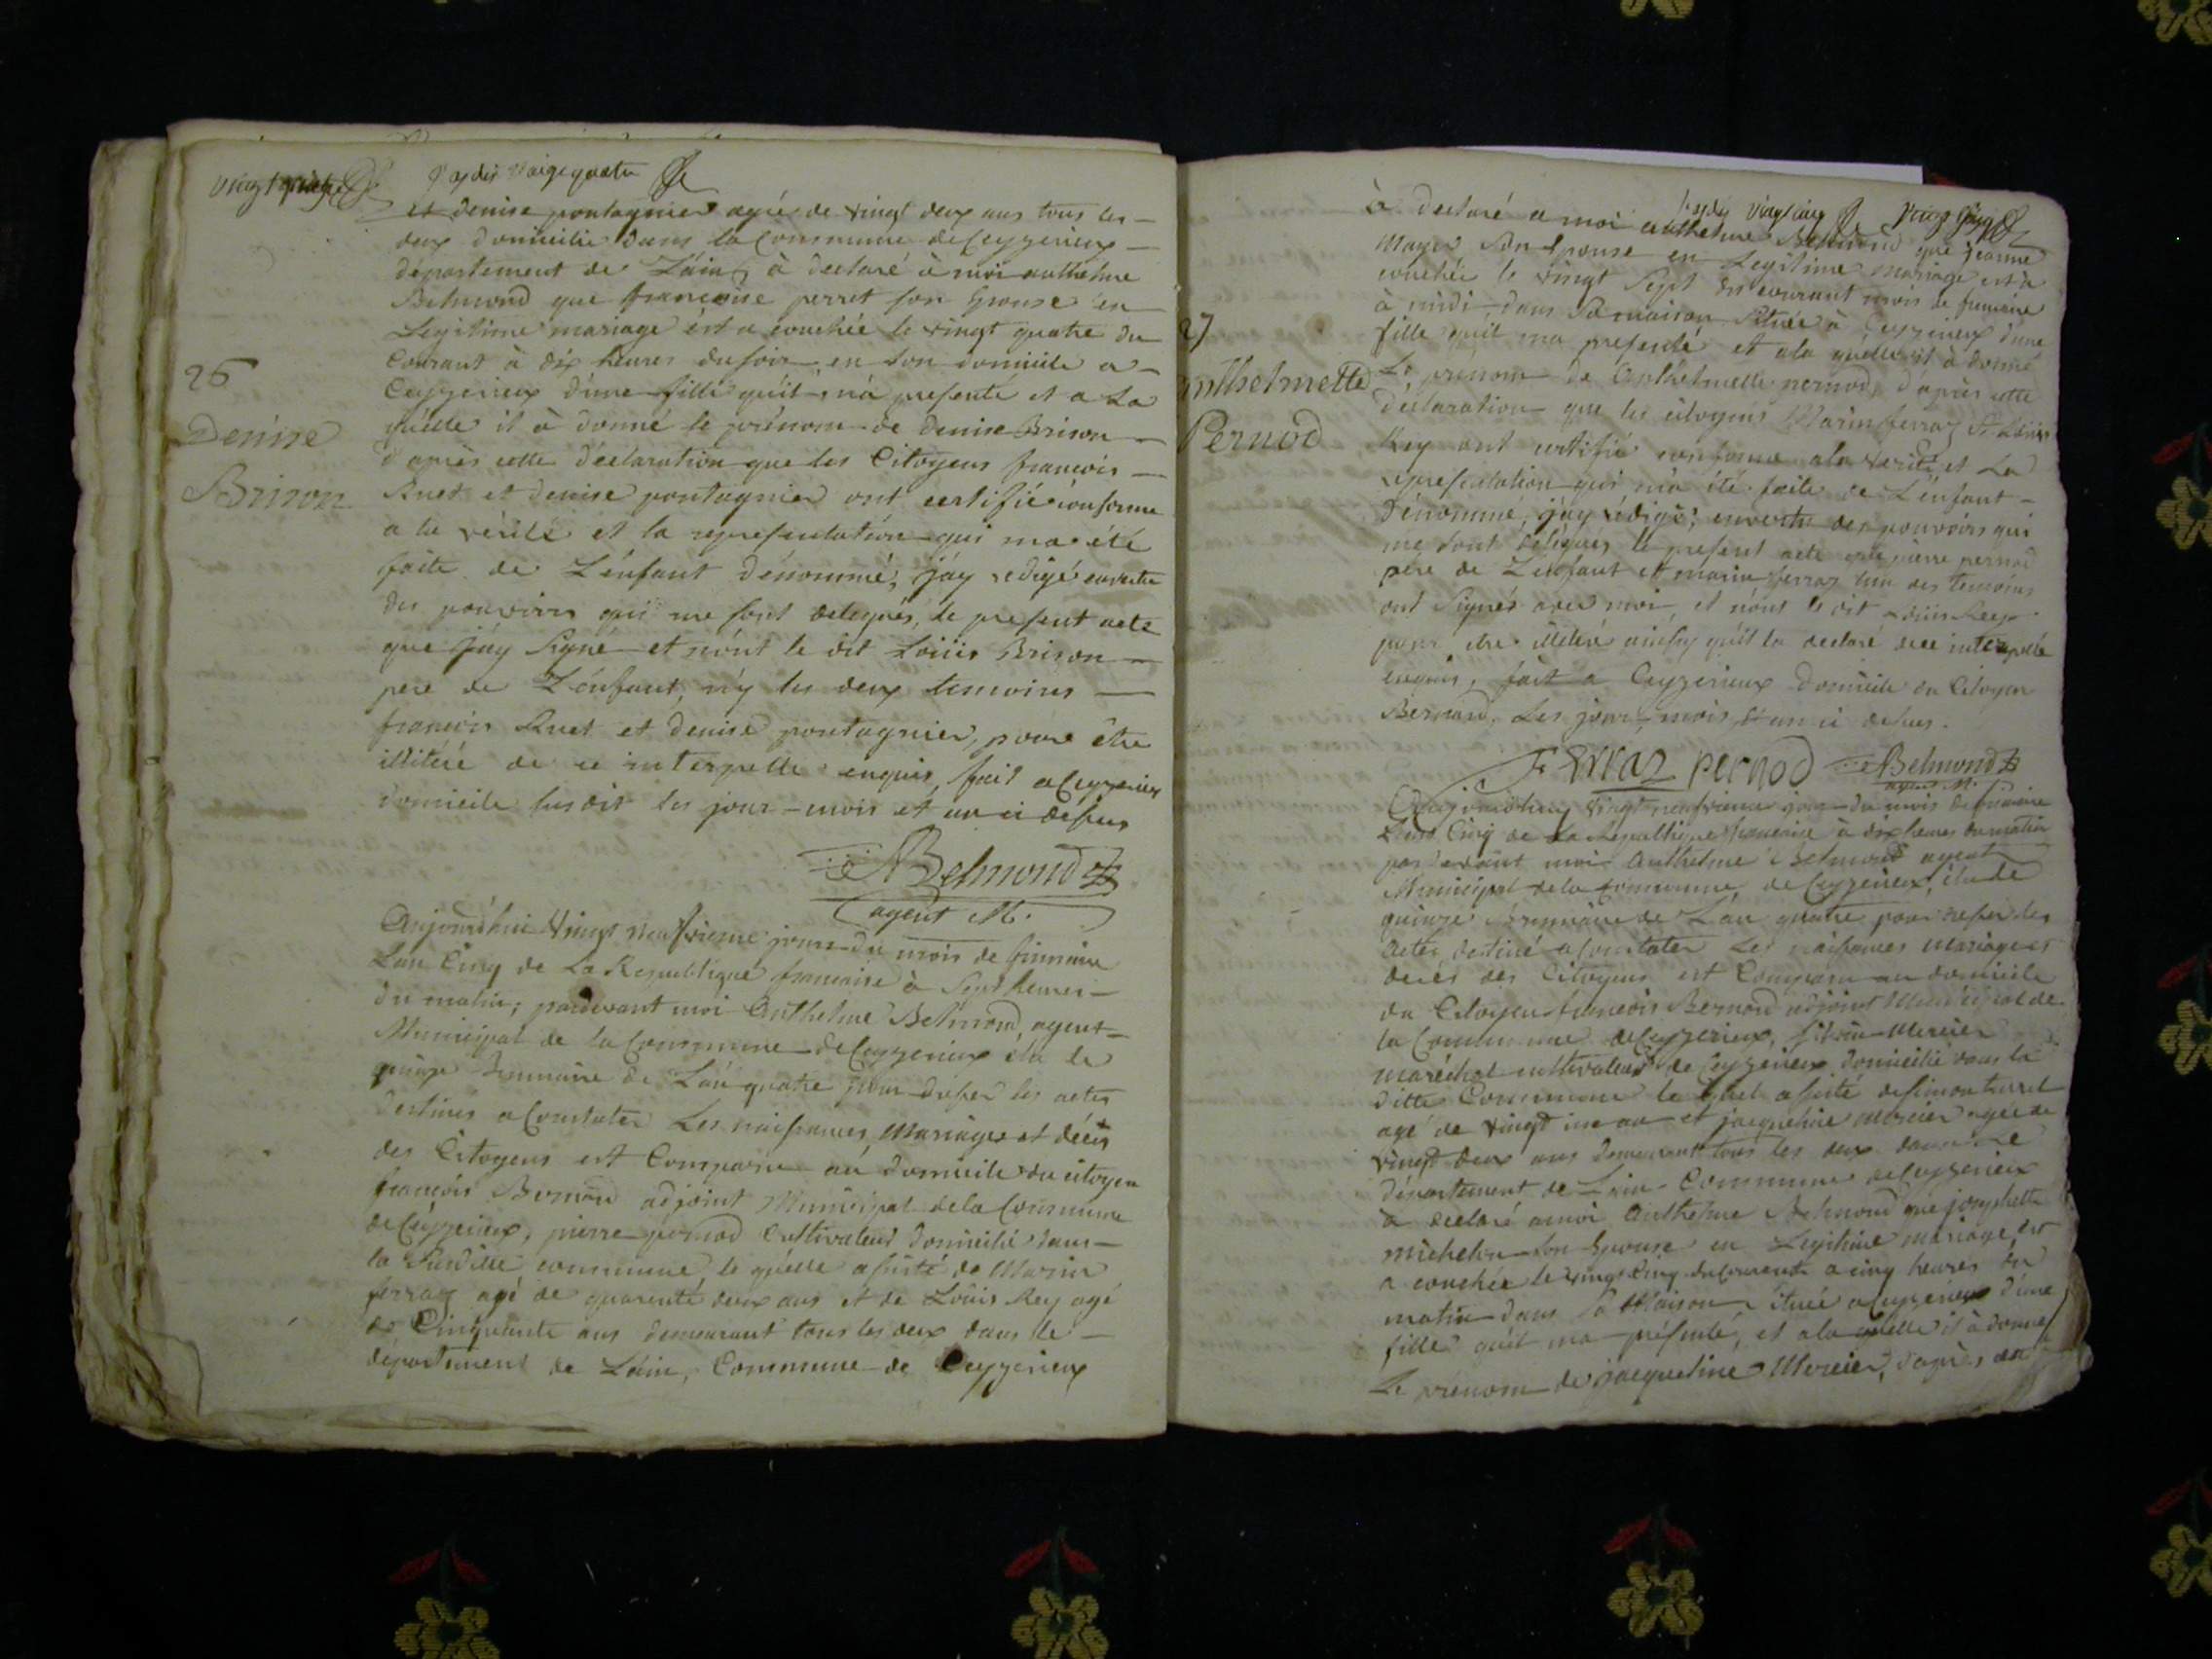 vingt quatre
vingt quatre
et denise pontagnier agée de vingt deux ans tous les
deux domicilié dans la Commune de Ceyzerieux
département de L'ain, à declaré à moi anthelme
Belmond que francoise perret son Epouse en
Legitime mariage est a couchée le vingt quatre du
Courant à dix heures du soir, en son domicile a
Ceyzerieux d'une fille qu'il m'à presenté et a La
quelle il à donné le prénom de Denise Brison
d'après cette déclaration que les Citoyens francois
Ruet et denise pontagnier ont certifié conforme
a la vérité et la representation qui ma été
faite de L'enfant dénommé, j'ay redigé en vertu
des pouvoirs qui me sont delegués, le present acte
que j'ay Signé et n'ont le dit Loüis Brison
pere de L'enfant, n'y les deux temoins
francois Ruet et Denise pontagnier, pour être
illitéré de ce interpellé enquis, fait a Ceyzerieux
domicile susdit les jour mois et an ci dessus
Belmond
agent M.
26
Denise
Brison
Aujourd'hui Vingt neufvieme jour du mois de frimaire
L'an Cinq de La Republique francaise à Sept heures
du matin, pardevant moi Anthelme Belmond, agent
Municipal de la Commune de Ceyzerieux élu le
quinze brumaire de L'an quatre pour dresser les actes
destinés a Constater Les naissances, Mariages et décès
des Citoyens est Comparu au domicile du citoyen
francois Bernard adjoint Municipal de la Commune
de Ceyzerieux, pierre pernod Cultivateur domicilié dans
la Susditte commune, le quelle assisté de Marin
ferraz agé de quarente deux ans et de Loüis Rey agé
de Cinquante ans demeurant tous les deux dans le
département de L'ain, Commune de Ceyzerieux
vingt cinq
vingt cinq
à declaré a moi anthelme Belmond que jeanne
Mager Son Epouse en Legitime mariage est à
couchée le vingt Sept du courant mois de frimaire
à midi, dans Sa maison Située à Ceyzerieux d'une
fille qu'il ma presenté et a la quelle il à donné
Le prenom de Anthelmette pernod, d'après cette
declaration que les citoyens Marin ferraz et Loüis
Rey ont certifié conforme a la verité et La
representation qui m'à été faite de L'enfant
dénommé, j'ay rédigé, en vertu des pouvoirs qui
me sont délégués le present acte que pierre pernod
père de L'enfant et marin ferraz l'un des temoins
ont Signés avec moi, et n'ont le dit Loüis Rey
pour etre illitéré ainsy qu'il la declaré de ce interpellé
enquis, fait a Ceyzerieux domicile du Citoyen
Bernard, Les jour, mois et an ci dessus.
Ferraz pernod Belmond
agent M.
27
Anthelmette
Pernod
Aujourdhuy vingt neufvieme jour du mois de frimaire
L'an Cinq de La Republique francaise à dix heures du matin
par devant moi Anthelme Belmond agent
Municipal de la Commune de Ceyzerieux, élu le
quinze brumaire de L'an quatre pour dresser les
actes destiné a constater Les naissances mariages et
decès des Citoyens est Comparu au domicile
du Citoyen francois Bernard adjoint Municipal de
la Commune de Ceyzerieux, Mercier
maréchal cultivateur de Ceyzerieux, domicilié dans la
ditte Commune le quel assisté de Simon
agé de vingt un an et jacqueline mercier agée de
vingt deux ans demeurant tous les deux dans le
département de L'ain Commune de Ceyzerieux
à declaré amoi Anthelme Belmond que josephette
michelon son Epouse en Legitime mariage est
a couchée le vingt cinq du Courant a cinq heures du
matin dans Sa Maison Située a Ceyzerieux d'une
fille qu'il ma présenté, et a la quelle il à donné
Le prénom de jacqueline Mercier, d'après